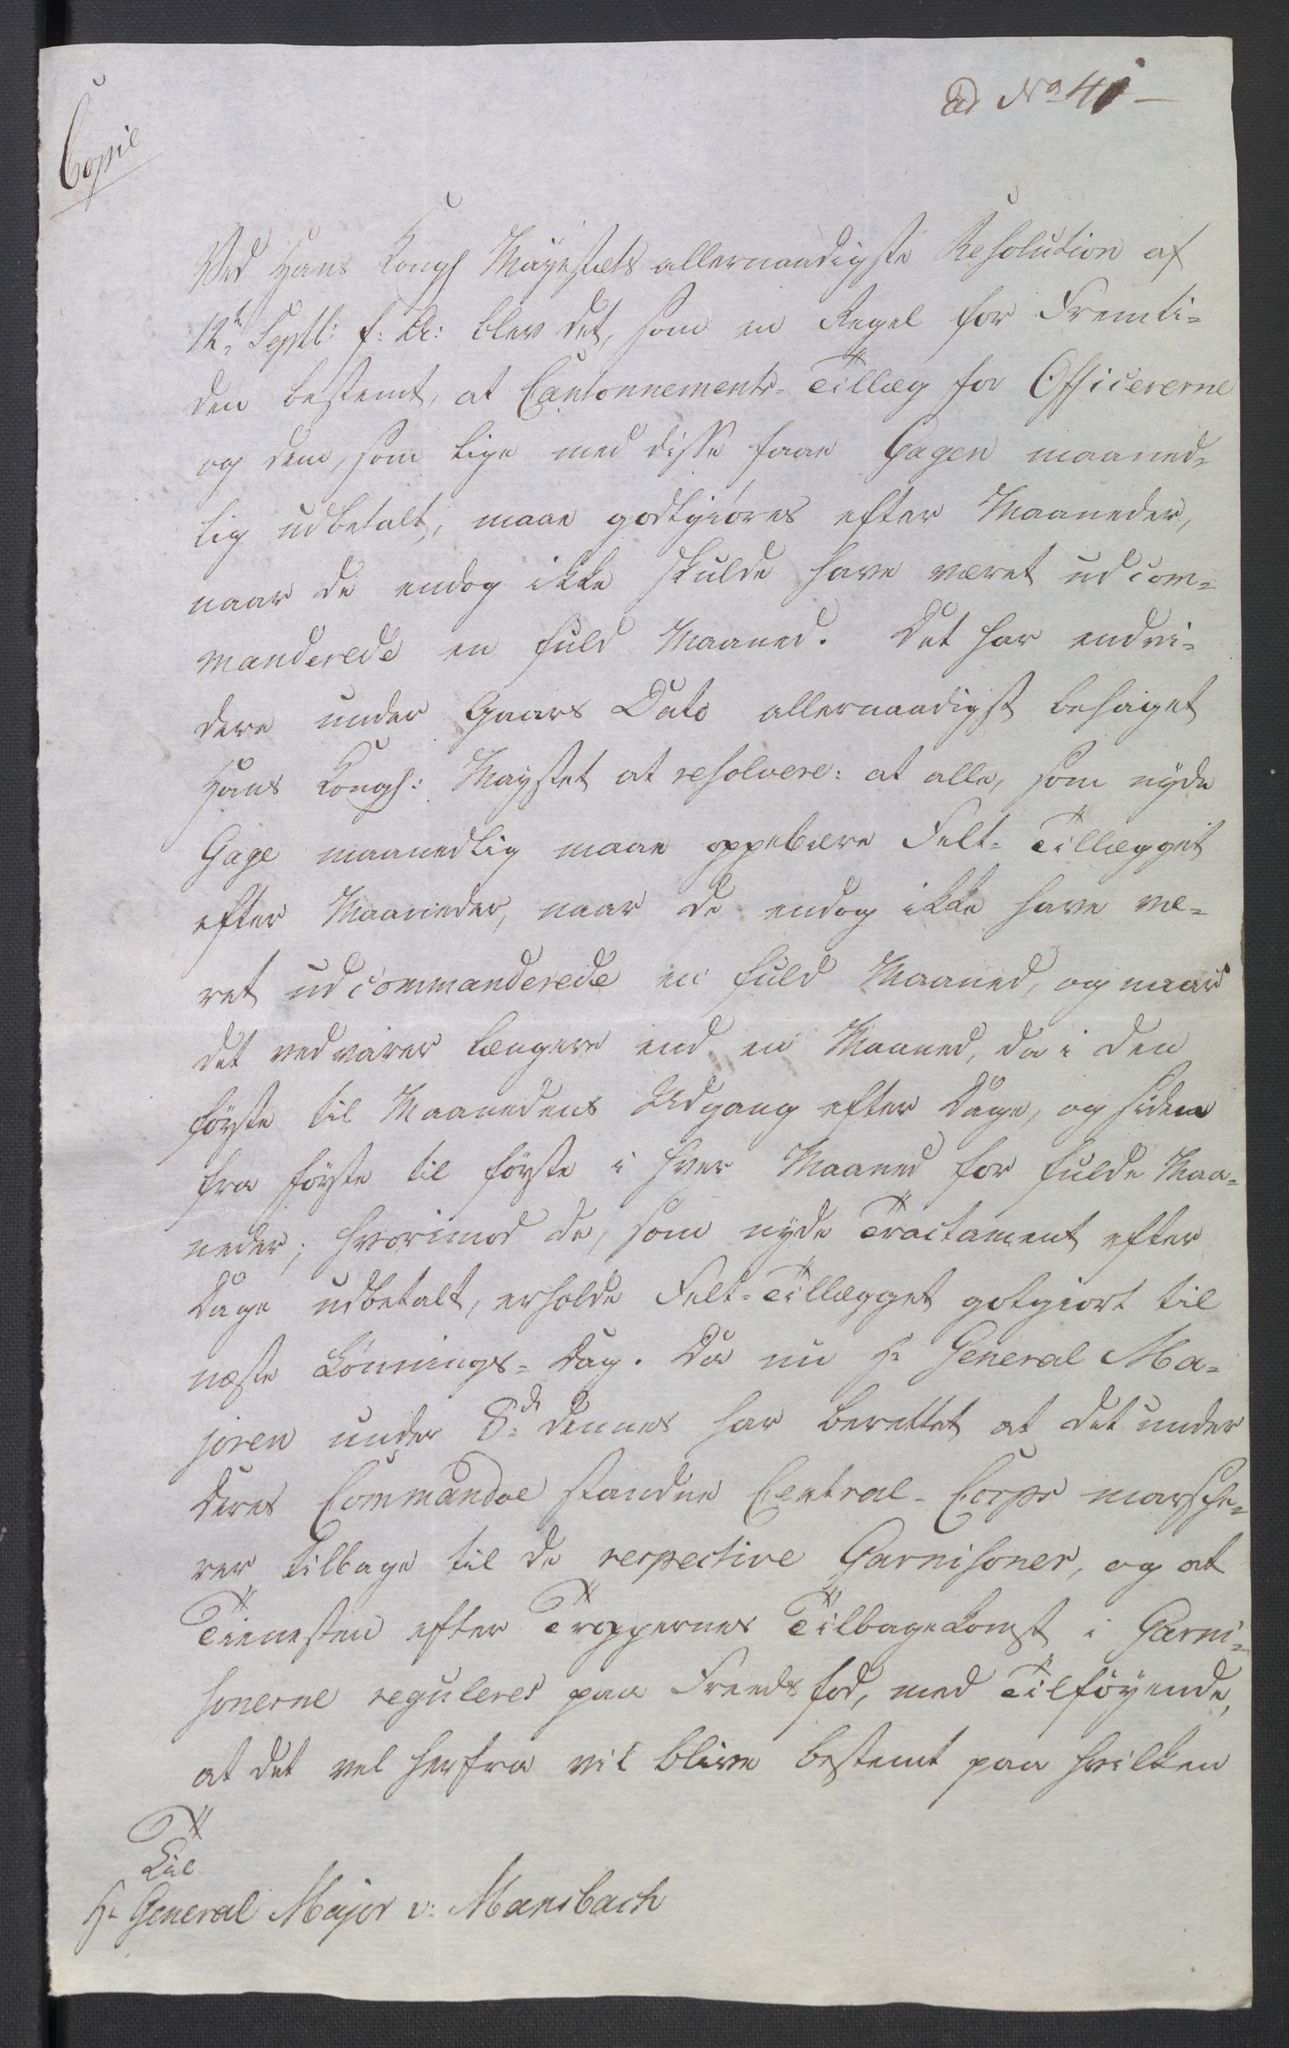 ad No 41 –
Copie
Ved Hans Kongl Mayestæts allernaadigste Resolution af
12te Septbr: f: A: blev det, som en Regel for Fremti-
den bestemt, at Cantonnements-Tillæg for Officererne
og dem, som lige med disse faae Gagen maaned-
lig udbetalt, maae godtgiøres efter Maaneder,
naar de endog ikke skulde have været udcom-
manderede en fuld Maaned. Det har endvi-
dere under Gaars Dato allernaadigst behaget
Hans Kongl: Mayestet at resolvere: at alle, som nyde
Gage maanedlig maae oppebære Felt-Tillægget
efter Maaneder, naar de endog ikke have væ-
ret udcommanderede en fuld Maaned, og naar
det vedvarer længere end en Maaned, da i den
første til Maanedens Udgang efter Dage, og siden
fra første til første i hver Maaned for fulde Maa-
neder; hvorimod de, som nyde Tractament efter
Dage udbetalt, erholde Felt-Tillægget gotgiort til
næste Lønnings-Dag. Da nu Hr General Ma-
joren under 8de dennes har berettet at det under
Deres Commandoe staaende Central-Corps marsche-
rer tilbage til de respective Garnisoner, og at
Tienesten efter Troppernes Tilbagekomst i Garni-
sonerne reguleres paa Freedsfod, med Tilføyende,
at det vel herfra vil blive bestemt paa hvilken
Til
Hr General Major v: Mansbach